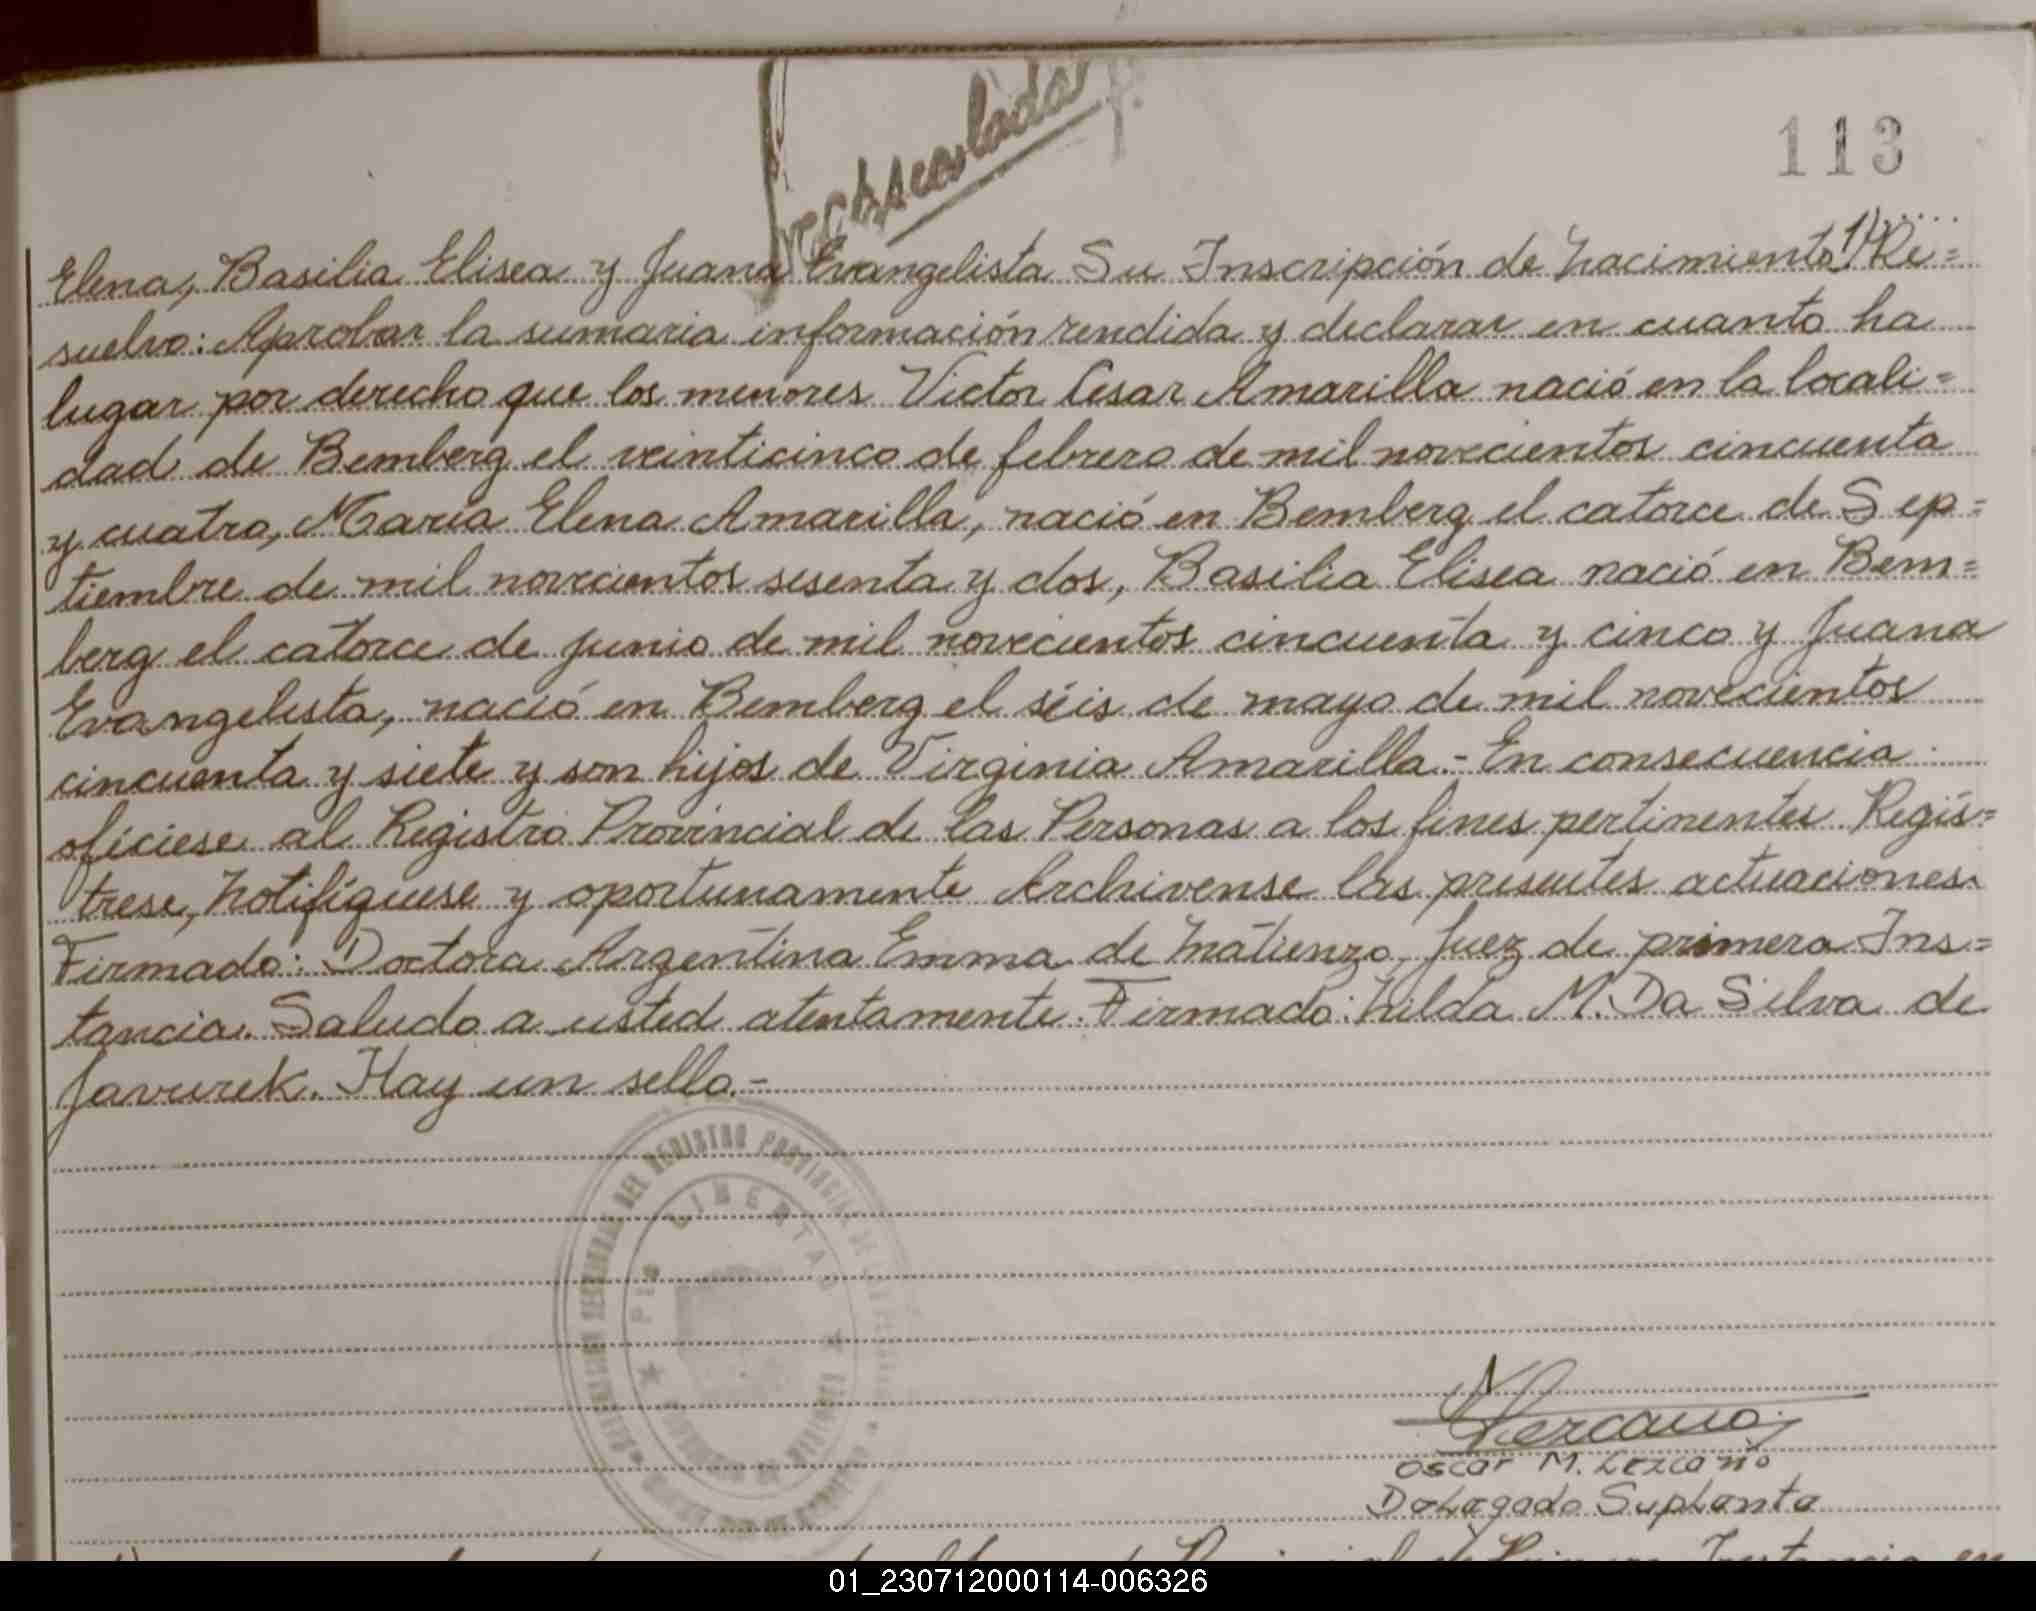 113
Elena, Basilia Elisea y Juana Evangelista Su Inscripción de nacimiento 1) Re=
suelvo: Aprobar la sumaria información rendida y declarar en cuanto ha
lugar por derecho que los menores Victor Cesar Amarilla nació en la locali=
dad de Bemberg el veinticinco de febrero de mil novecientos cincuenta
y cuatro, Maria Elena Amarilla, nació en Bemberg el catorce de Sep=
tiembre de mil novecientos sesenta y dos, Basilia Elisea nació en Bem=
berg el catorce de junio de mil novecientos cincuenta y cinco y Juana
Evangelista, nació en Bemberg el séis de mayo de mil novecientos
cincuenta y siete y son hijos de Virginia Amarilla.- En consecuencia
ofíciese al Registro Provincial de las Personas a los fines pertinentes. Regís=
trese, notifíquese y oportunamente Archivense las presentes actuaciones.
Firmado: Doctora Argentina Emma de Matienzo, Juez de primera Ins=
tancia. Saludo a usted atentamente. Firmado: hilda M. Da Silva de
Javurek. Hay un sello.-
DEL REGISTRO PROVINCIAL DE LAS
LIBERTAD
Lezcano
Oscar M. Lezcano
Delegado Suplente
01_230712000114-006326